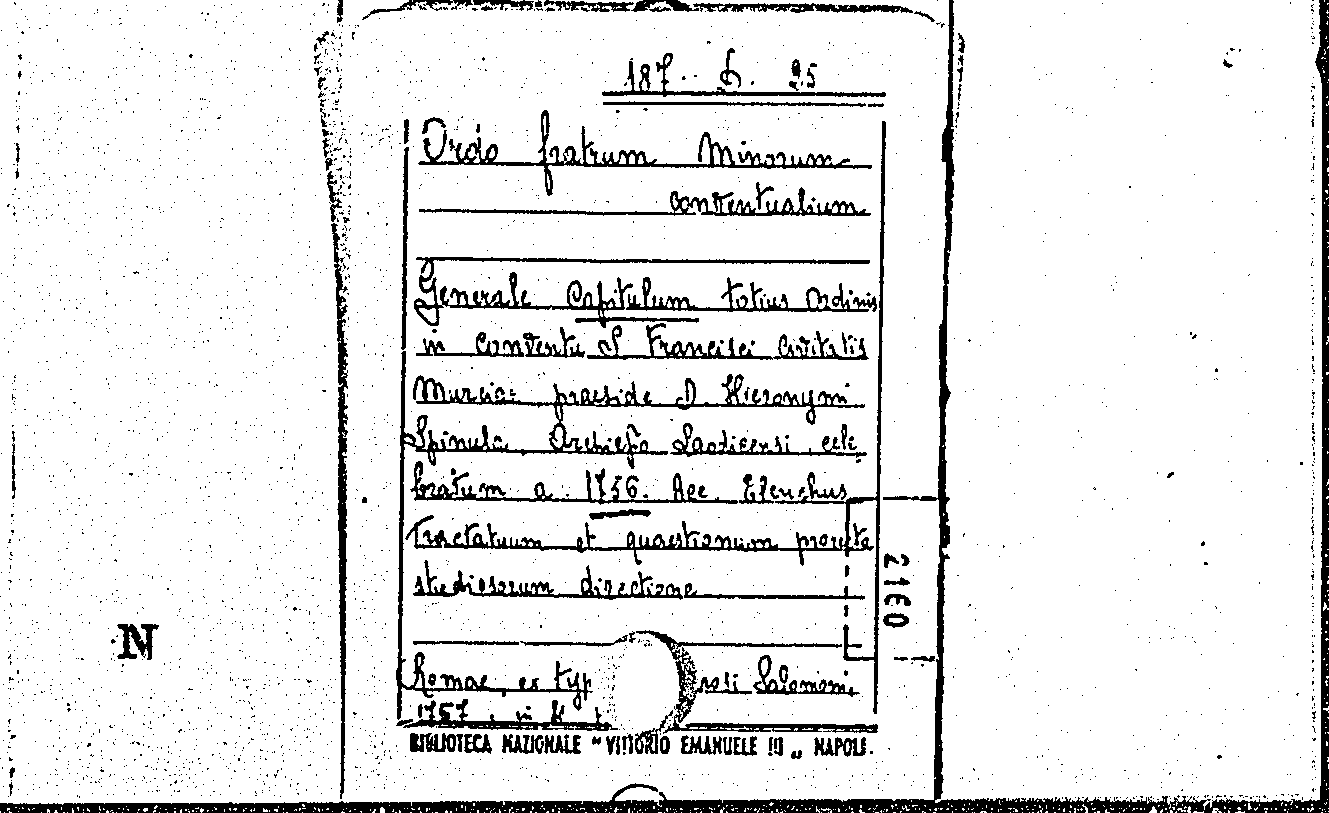 187. B. 25
Ordo fratrum Minorum
conventualium
Generale Capitulum totius Ordinis
in conventu S Francisci civitatis
Murciae praeside D. Hieronymi
Spinula, Archiepo Laodicensi cele
bratum a. 1756. Acc. Elenchus
Tractatuum et quaestionum pro
studiosorum directione
Romae, ex typ Salomoni,
1757, in
BIBLIOTECA NAZIONALE "VITTORIO EMANUELE III„ NAPOLI.
2160
N